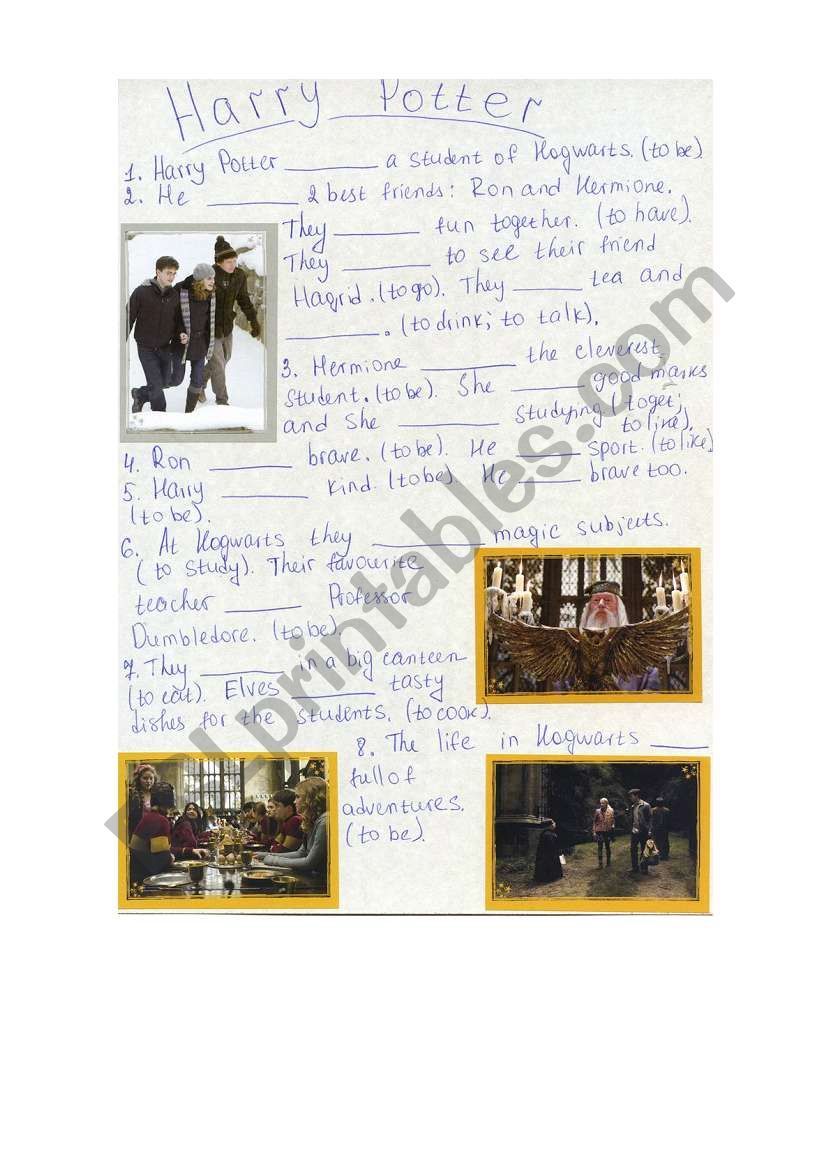 Harry Potter
1. Harry Potter ________ a student of Hogwarts. (to be)
2. He ________ 2 best friends: Ron and Hermione.
They ________ fun together. (to have).
They ________ to see their friend
Hagrid. (to go). They ______ tea and
________. (to drink; to talk).
3. Hermione ________ the cleverest
student. (to be). She ______ good marks
and she ________ studying (to get;
to like).
4. Ron ________ brave. (to be). He _____ sport. (to like)
5. Harry ________ kind. (to be). He _____ brave too.
(to be).
6. At Hogwarts they ________ magic subjects.
(to study). Their favourite
teacher ______ Professor
Dumbledore. (to be).
7. They ________ in a big canteen
(to eat). Elves ________ tasty
dishes for the students. (to cook).
8. The life in Hogwarts _____
full of
adventures.
(to be).
ESLprintables.com